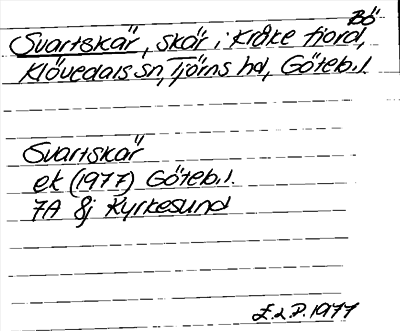 Bö
Svartskär, skär i Kråke fjord,
Klövedals sn, Tjörns hd, Göteb.l.
Svartskär
ek (1977) Göteb.l.
7A 8j Kyrkesund
E.L.P. 1977